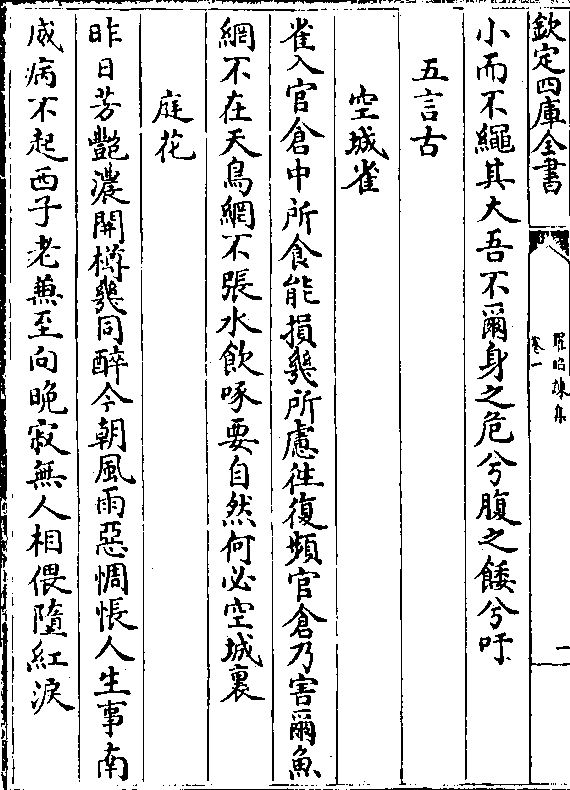 欽定四庫全書
羅昭諫集
卷一
一
小而不繩其大吾不爾身之危兮腹之餧兮吁
五言古
空城雀
雀入官倉中所食能損幾所慮徃復頻官倉乃害爾魚
網不在天鳥網不張水飲啄要自然何必空城裏
庭花
昨日芳豔濃開樽幾同醉今朝風雨惡惆悵人生事南
威病不起西子老兼至向晚寂無人相偎墮紅淚